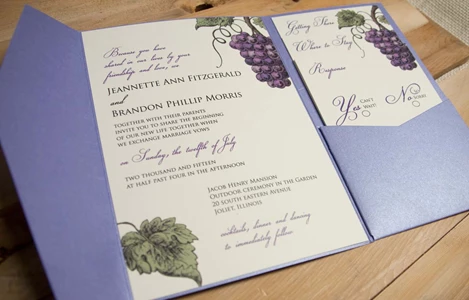 Because you have
shared in our lives by your
friendship and love, we
Jeannette Ann Fitzgerald
and
Brandon Phillip Morris
together with their parents
invite you to share the beginning
of our new life together when
we exchange marriage vows
on Sunday, the twelfth of July
two thousand and fifteen
at half past four in the afternoon
Jacob Henry Mansion
Outdoor Ceremony in the Garden
20 South Eastern Avenue
Joliet, Illinois
cocktails, dinner and dancing
to immediately follow
Getting There
Where to Stay
Response
Yes Can't Wait! No Sorry!